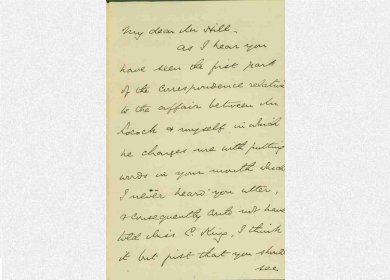 My dear Mr Hill.
As I hear you
have seen the first part
of the correspondence relative
to the affair between Mr
& myself in which
he charges me with putting
words in your mouth which
I never heard you utter,
& consequently could not have
told Miss C. King, I think
it but just that you should
see